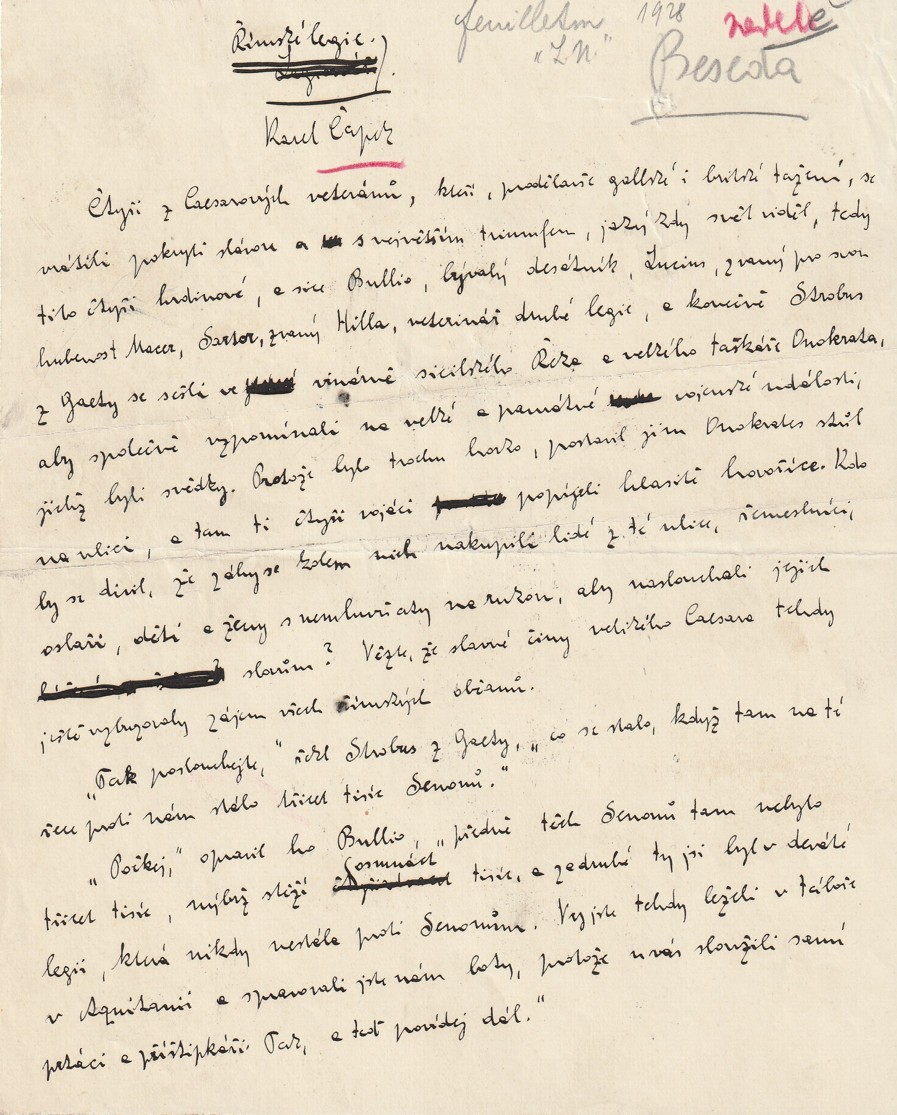 feuilleton 1928 neděle
"L.N."
Beseda
Římské legie.
Karel Čapek
Čtyři z Caesarových veteránů, kteří, prodělavše gallské i britské tažení, se
vrátili pokryti slávou a s největším triumfem, jaký kdy svět viděl, tedy
tito čtyři hrdinové, a sice Bullio, bývalý desátník, Lucius, zvaný pro svou
hubenost Macer, Sartor, zvaný Hilla, veterinář druhé legie, a konečně Strobus
z Gaety se sešli ve vinárně sicilského Řeka a velkého taškáře Onokrata,
aby společně vzpomínali na velké a památné vojenské události,
jichž byli svědky. Protože bylo trochu horko, postavil jim Onokrates stůl
na ulici, a tam ti čtyři vojáci popíjeli hlasitě hovoříce. Kdo
by se divil, že záhy se kolem nich nakupili lidé z té ulice, řemeslníci,
oslaři, děti a ženy s nemluvňaty na rukou, aby naslouchali jejich
slovům? Vězte, že slavné činy velikého Caesara tehdy
ještě vzbuzovaly zájem všech římských občanů.
"Tak poslouchejte," řekl Strobus z Gaety, "co se stalo, když tam na té
řece proti nám stálo třicet tisíc Senonů."
"Počkej," opravil ho Bullio, "předně těch Senonů tam nebylo
třicet tisíc, nýbrž stěží osmnáct tisíc, a zadruhé ty jsi byl v deváté
legii, která nikdy nestála proti Senonům. Vy jste tehdy leželi v táboře
v Aquitanii a spravovali jste nám boty, protože u vás sloužili samí
prtáci a příštipkáři. Tak, a teď povídej dál."